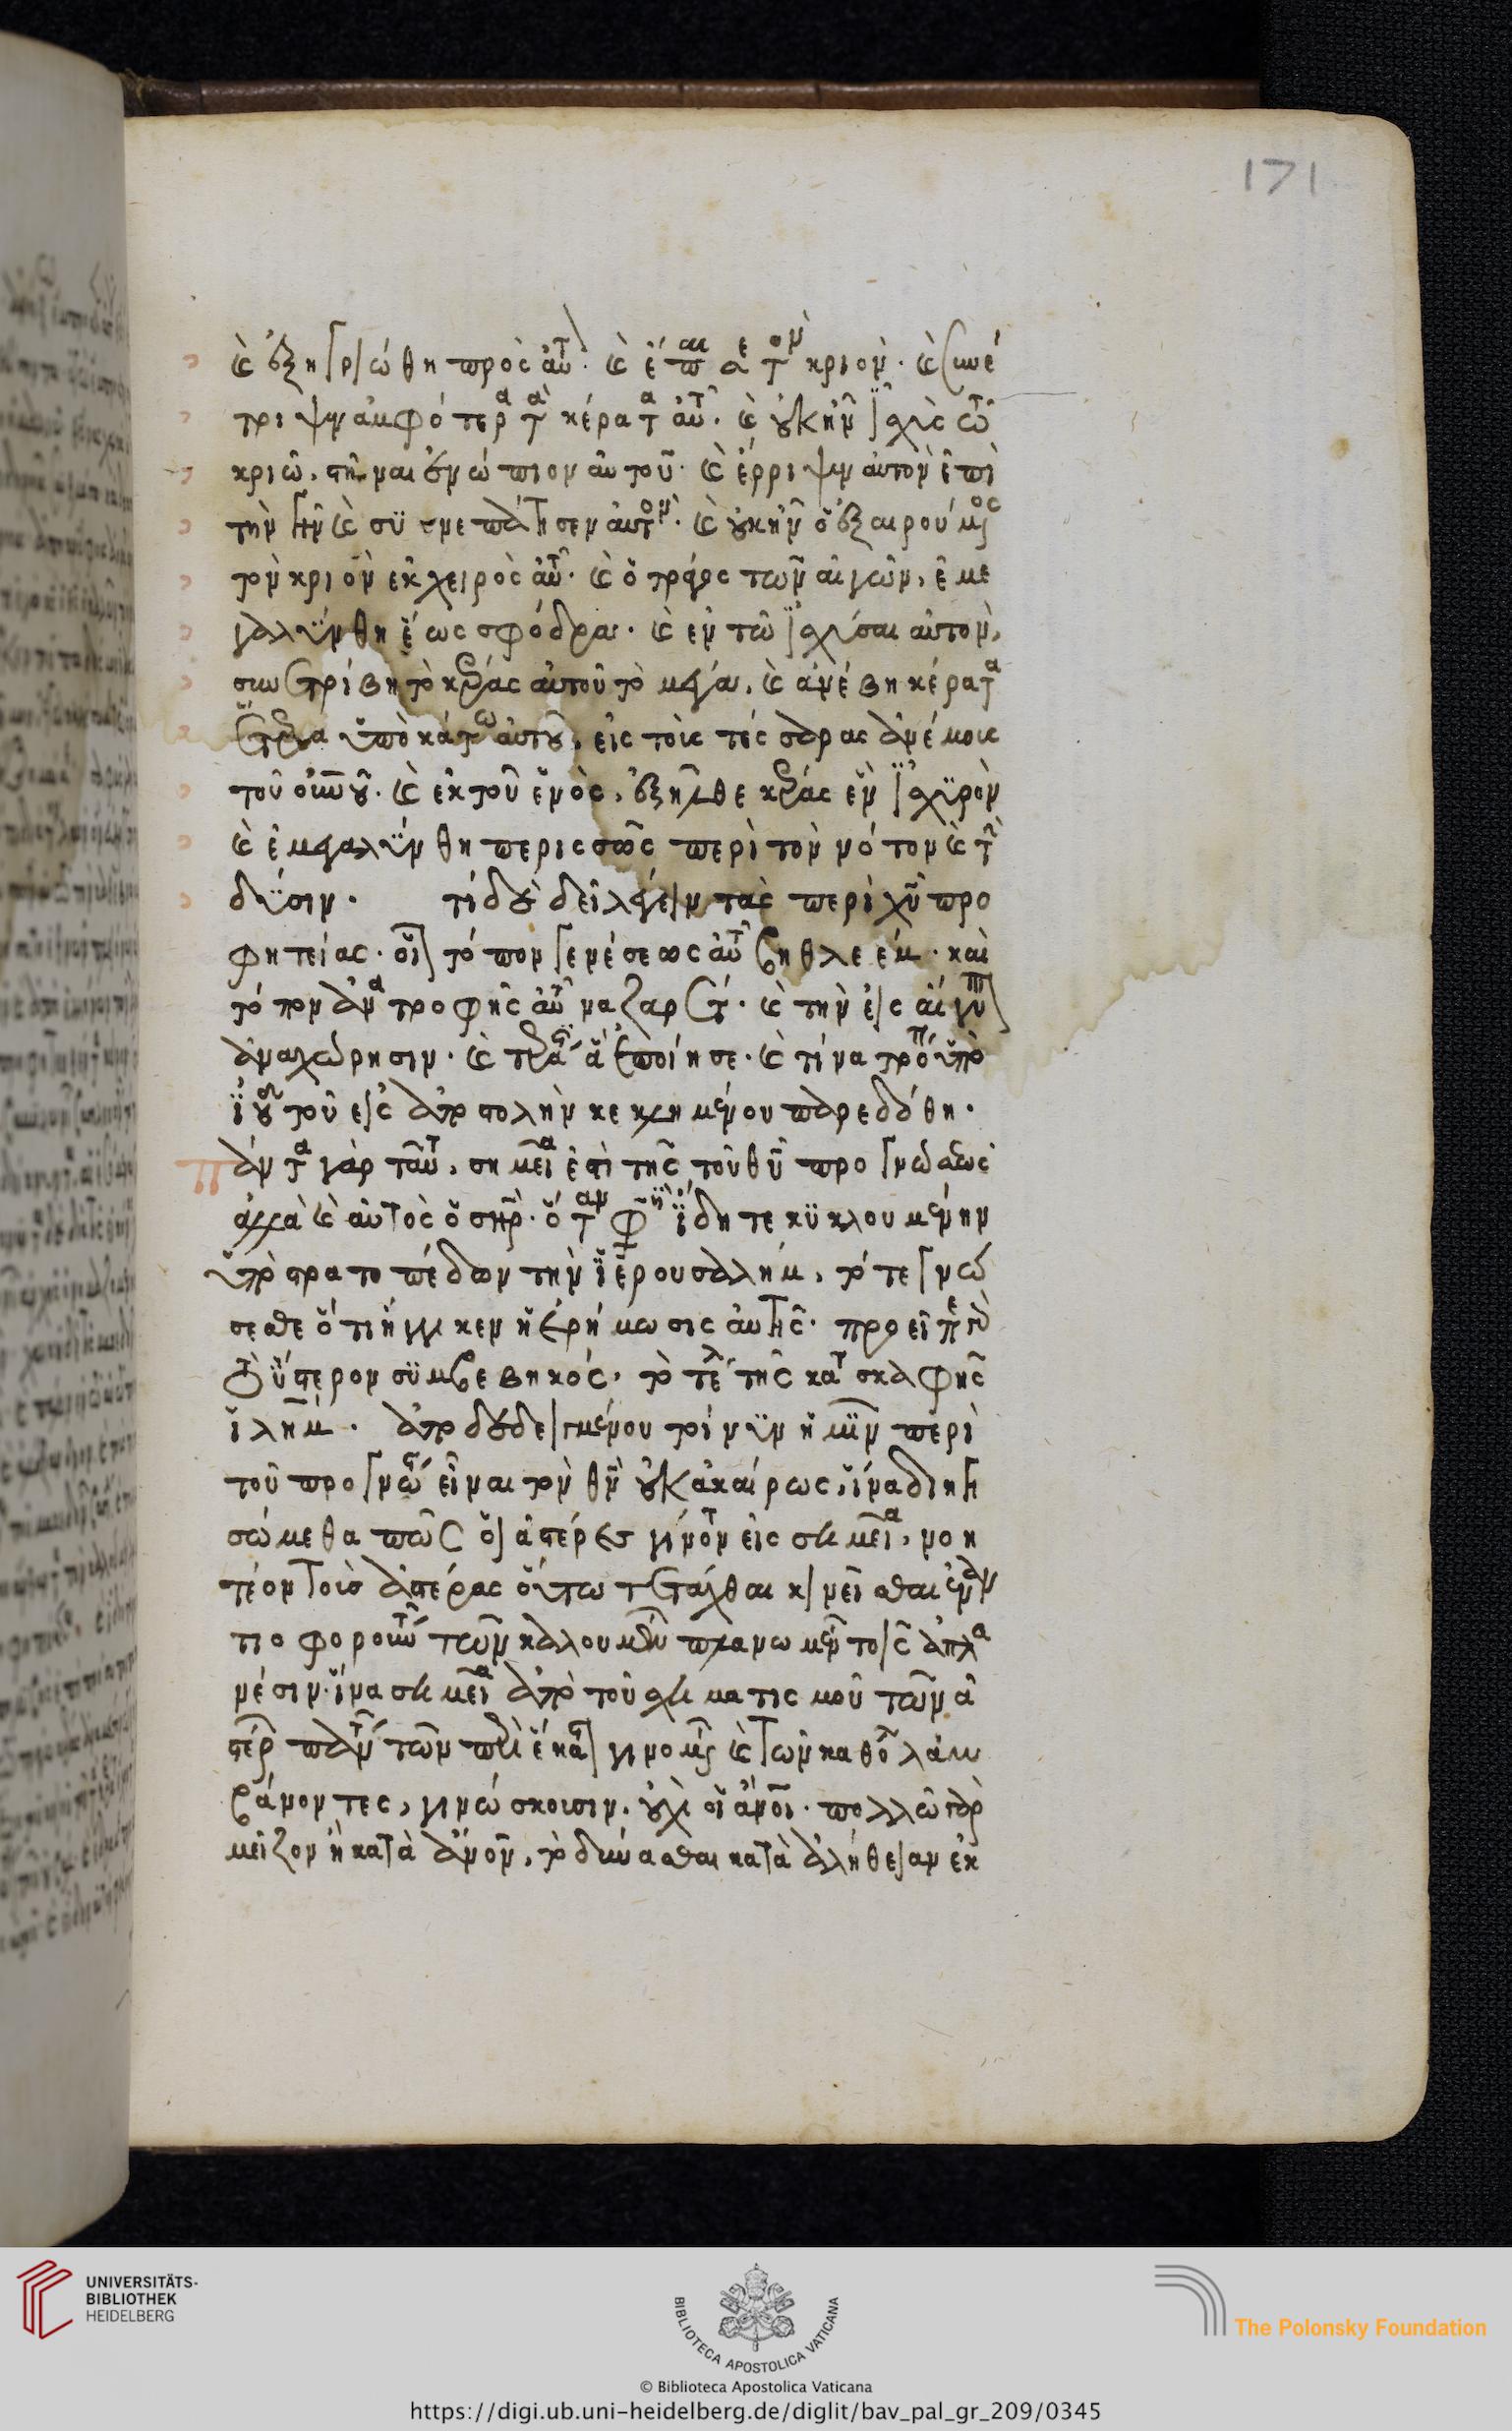 171
καὶ ἐξηγριώθη πρὸς αὐτ. καὶ ἔπαισε τὸν κριόν. καὶ συνέ
τριψεν ἀμφότερα τὰ κέρατα αὐτ. καὶ οὐκ ἦν ἰσχὺς τῶ
κριῶ, στῆναι ἐνώπιον αὐτοῦ. καὶ ἔρριψεν αὐτὸν ἐπὶ
τὴν γῆν καὶ συνεπάτησεν αὐτόν. καὶ οὐκ ἦν ὁ ἐξαιρούμενος
τὸν κριὸν ἐκ χειρὸς αὐτ. καὶ ὁ τράγος τῶν αἰγῶν, ἐμε
γαλύνθη ἕως σφόδρα. καὶ ἐν τῶ ἰσχύσαι αὐτὸν,
συνετρίβη τὸ κέρας αὐτοῦ τὸ μέγα, καὶ ἀνέβη κέρατα
ἕτερα ὑποκάτω αὐτοῦ, εἰς τοὺς τέσσαρας ἀνέμους
τοῦ οὐνοῦ. καὶ ἐκ τοῦ ἑνὸς, ἐξῆλθε κέρας ἓν ἰσχυρὸν
καὶ ἐμεγαλύνθη περισσῶς περὶ τὸν νότον καὶ τὴν
δύσιν. τί δὲ δεῖ λέγειν τὰς περὶ χυ προ
φητείας. οἷον τόπον γενέσεως αὐτ βηθλεέμ. καὶ
τόπον ἀνατροφῆς αὐτ ναζαρέτ. καὶ τὴν εἰς αἴγυπτον
ἀναχώρησιν. καὶ τεράστια ἃ ἐποίησε. καὶ τίνα τρόπον ὑπὸ
ἰούδα τοῦ εἰς ἀποστολὴν κεκλημένου παρεδόθη.
πάντα γὰρ ταῦτ, σημεῖα ἐστὶ τῆς τοῦ θυ προγνώσεως
ἀλλὰ καὶ αὐτὸς ὁ σηρ. ὅταν φησὶν ἴδητε κυκλουμένην
ὑπὸ στρατοπέδων τὴν ἱερουσαλήμ, τότε γνώ
σεσθε ὅτι ἤγγικεν ἡ ἐρήμωσις αὐτῆς. προεῖπε γὰρ
τὸ ὕστερον συμβεβηκός, τὸ τέλος τῆς κατασκαφῆς
ιλημ. ἀποδεδειγμένου τοίνυν ἡμῖν περὶ
τοῦ προγνώστην εἶναι τὸν θν οὐκ ἀκαίρως, ἵνα διηγη
σώμεθα πῶς οἱ ἀστέρες γίνονται εἰς σημεῖα, νοη
τέον τοὺς ἀστέρας οὕτω τετάχθαι κινεῖσθαι ἐναν
τιοφορούντων τῶν καλουμένων πλανωμένων τοῖς ἀπλα
νέσιν. ἵνα σημεῖα ἀπὸ τοῦ σχηματισμοῦ τῶν ἀ
στέρων πάντων τῶν περὶ ἕκαστον γινομένων καὶ τῶν καθόλου λαμ
βάνοντες, γινώσκουσιν. οὐχὶ οἱ ἄνοι. πολλῶ γὰρ
μεῖζον ἢ κατὰ ἄνον, τὸ δύνασθαι κατὰ ἀλήθειαν ἐκ
UNIVERSITÄTS-
BIBLIOTHEK
HEIDELBERG
BIBLIOTECA APOSTOLICA VATICANA
The Polonsky Foundation
© Biblioteca Apostolica Vaticana
https://digi.ub.uni-heidelberg.de/diglit/bav_pal_gr_209/0345